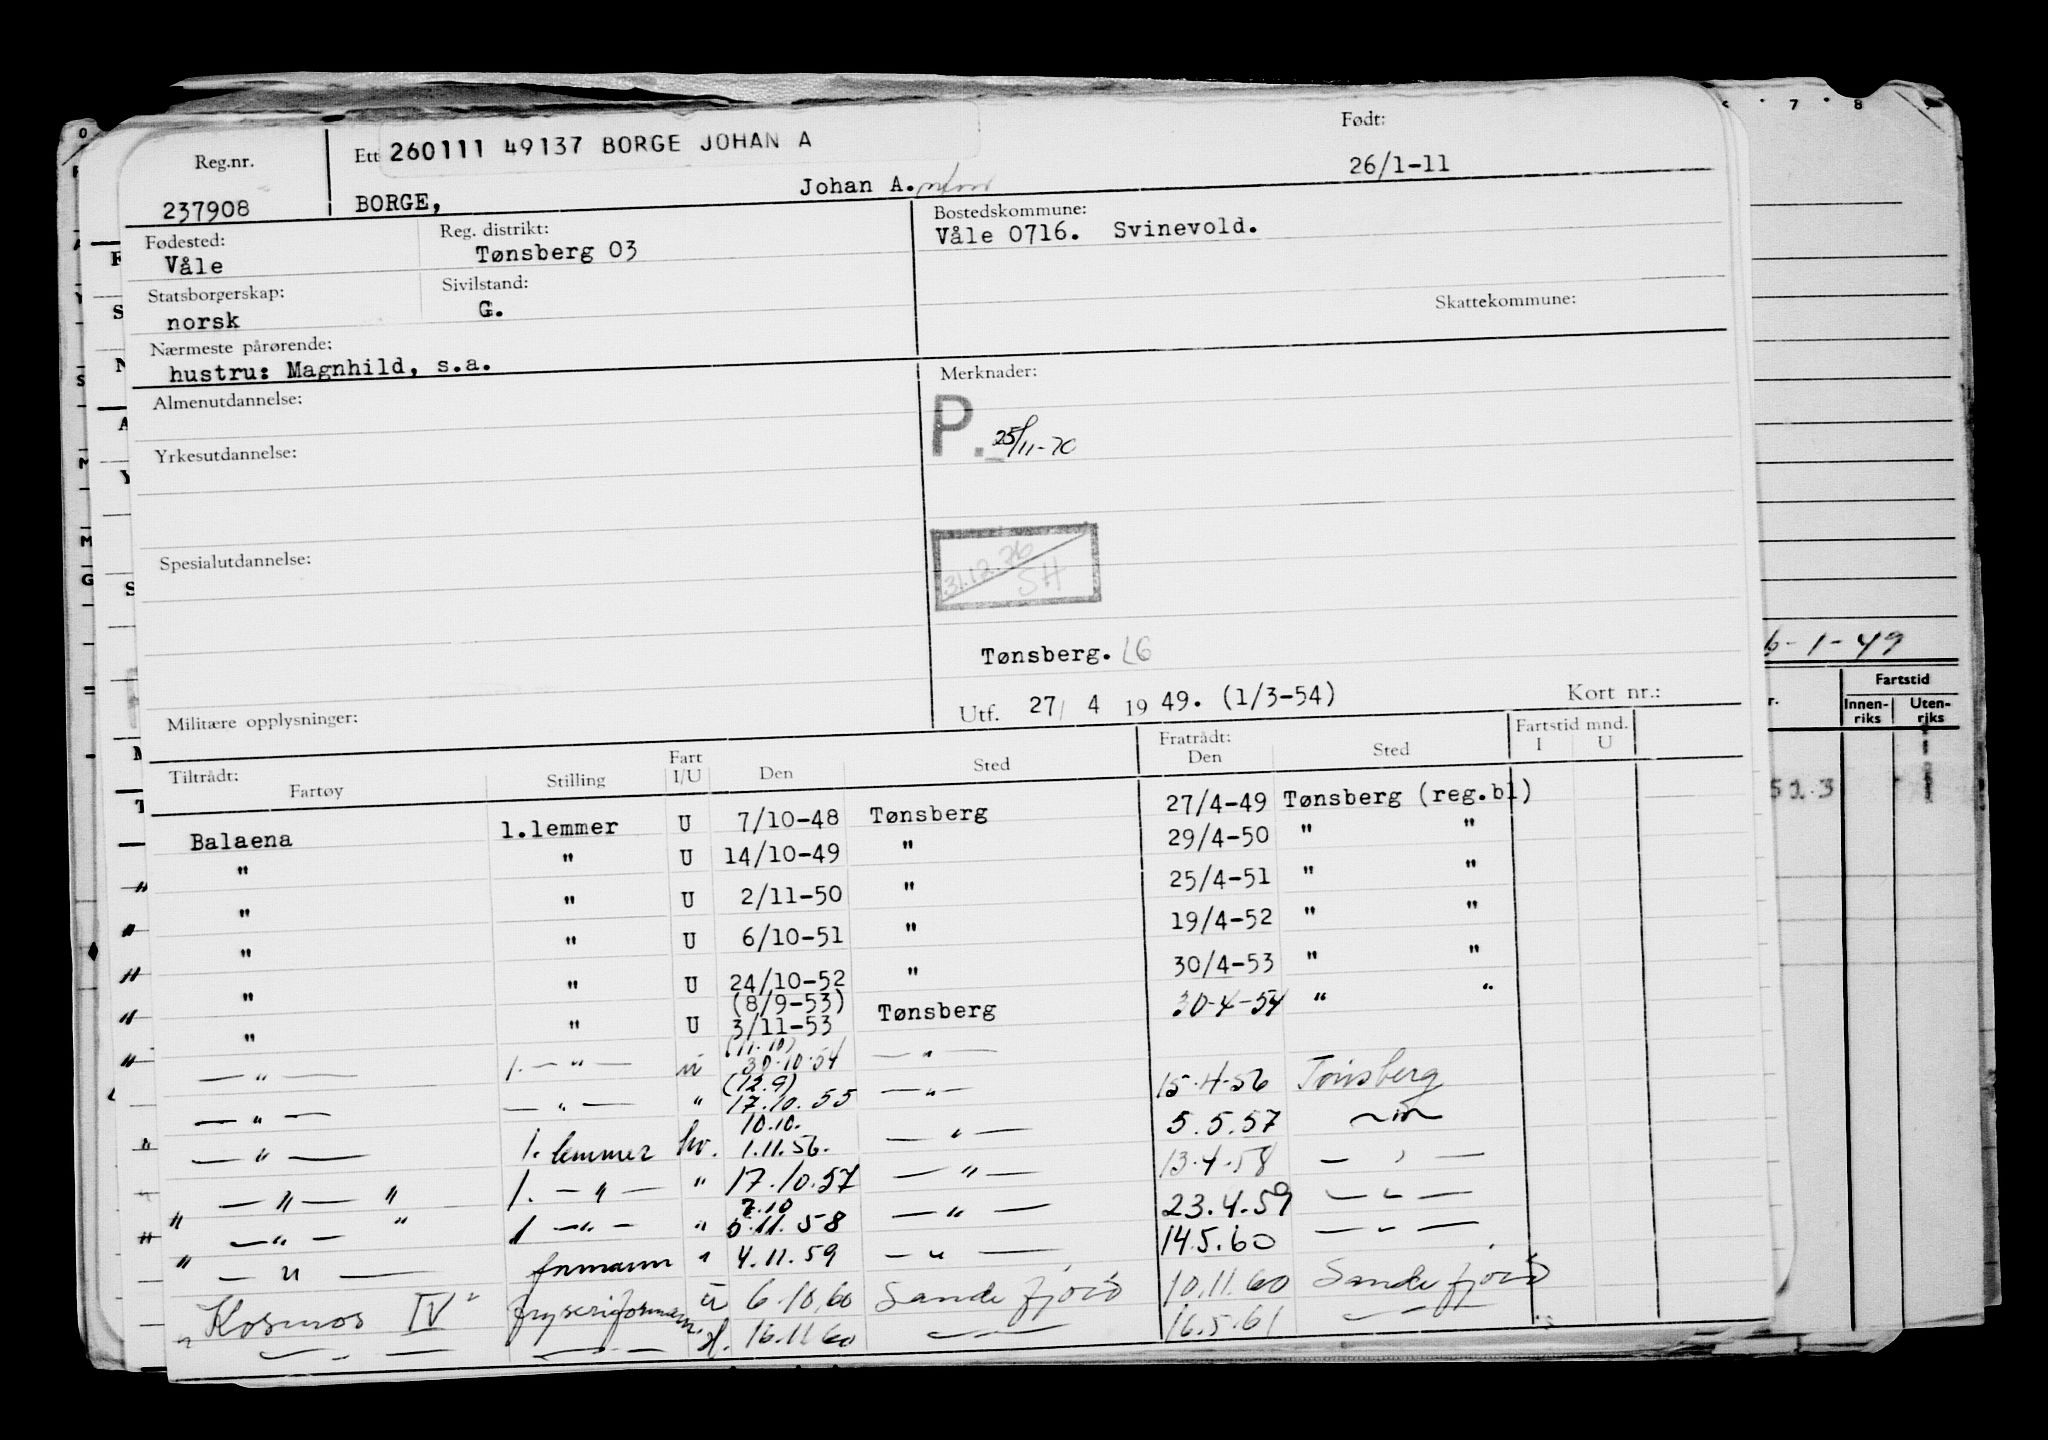 Reg.nr. Ett 260111 49137 BORGE JOHAN A Født:
237908 BORGE, Johan A. 26/1-11
Fødested: Reg. distrikt: Bostedskommune:
Våle Tønsberg 03 Våle 0716. Svinevold.
Statsborgerskap: Sivilstand: Skattekommune:
norsk G.
Nærmeste pårørende:
hustru: Magnhild, s.a.
Almenutdannelse: Merknader:
P. 25/11-70
Yrkesutdannelse:
Spesialutdannelse:
31.12.76
SH
Tønsberg. LG
Militære opplysninger: Utf. 27/ 4 19 49. (1/3-54) Kort nr.:
Tiltrådt: Fart Fratrådt: Fartstid mnd.
Fartøy Stilling I/U Den Sted Den Sted I U
Balaena 1.lemmer U 7/10-48 Tønsberg 27/4-49 Tønsberg (reg.bl)
" " U 14/10-49 " 29/4-50 " "
" " U 2/11-50 " 25/4-51 " "
" " U 6/10-51 " 19/4-52 " "
" " U 24/10-52 " 30/4-53 " "
(8/9-53)
" " U 3/11-53 Tønsberg 30-4-54 " "
(11.10)
— " — 1. — " — u 30.10.54 — " —
(12.9)
— " — — " — " 17.10.55 — " — 15.4.56 Tønsberg
10.10.
— " — 1. lemmer hv. 1.11.56. — " — 5.5.57 — " —
— " — " 1. — " — " 17.10.57 — " — 13.4.58 — " —
7.10
" — " — " 1 — " — " 5.11.58 — " — 23.4.59 — " —
" — " — formann " 4.11.59 — " — 14.5.60 — " —
" Kosmos IV" fryseriformann u 6.10.60 Sandefjord 10.11.60 Sandefjord
— " — — " — H. 16.11.60 — " — 16.5.61 — " —
6-1-49
Fartstid
Innen-riks Uten-riks